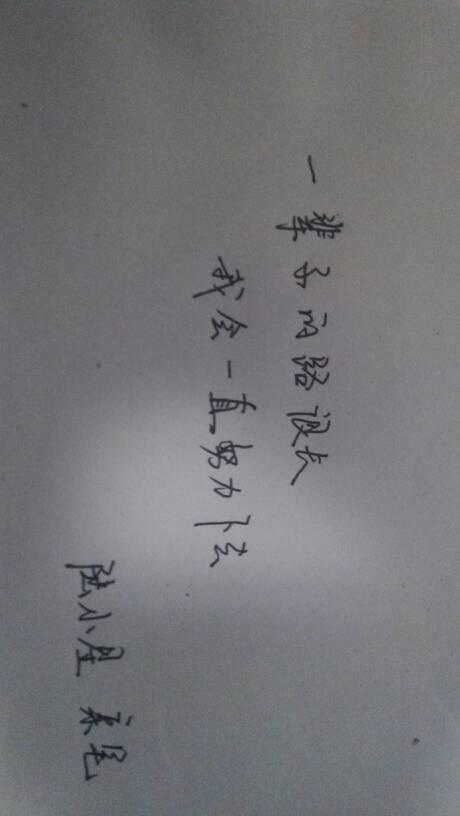 一辈子的路漫长
我会一直努力下去
陆小星